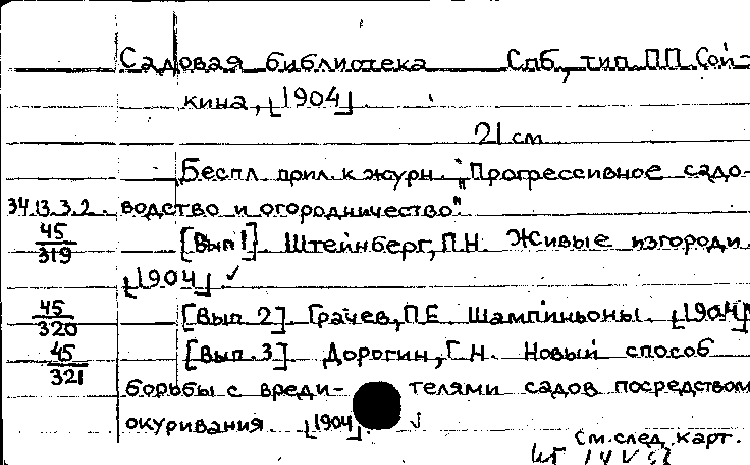 Садовая библиотека Спб, тип. П.П. Сой-
кина, [1904]
21 см
Беспл. прил. к журн. "Прогрессивное садо-
34.13.3.2. водство и огородничество".
45/319 [Вып 1]. Штейнберг, П.Н. Живые изгороди.
[1904] ✓
45/320 [Вып. 2]. Грачев, П.Е. Шампиньоны. [1904]
45/321 [Вып. 3]. Дорогин, Г.Н. Новый способ
борьбы с вреди- телями садов посредством
окуривания. [1904]. ✓
См. след. карт.